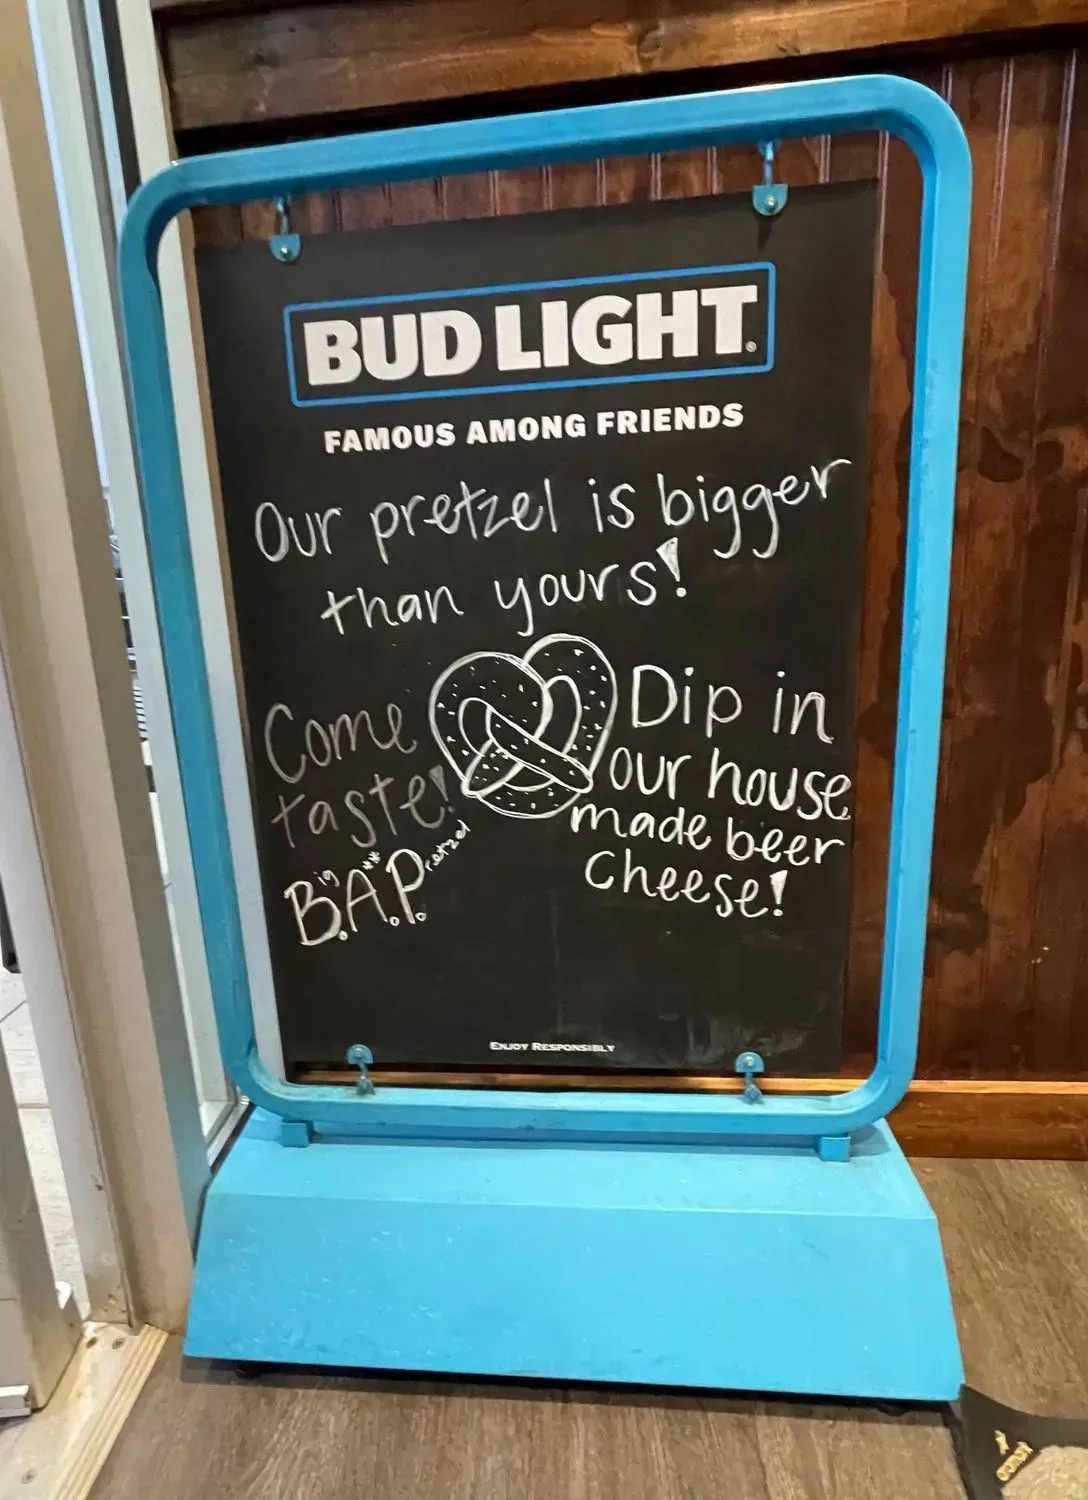 BUD LIGHT®
FAMOUS AMONG FRIENDS
Our pretzel is bigger
than yours!
Come
taste!
Big A** Pretzel
B.A.P.
Dip in
our house
made beer
cheese!
ENJOY RESPONSIBLY